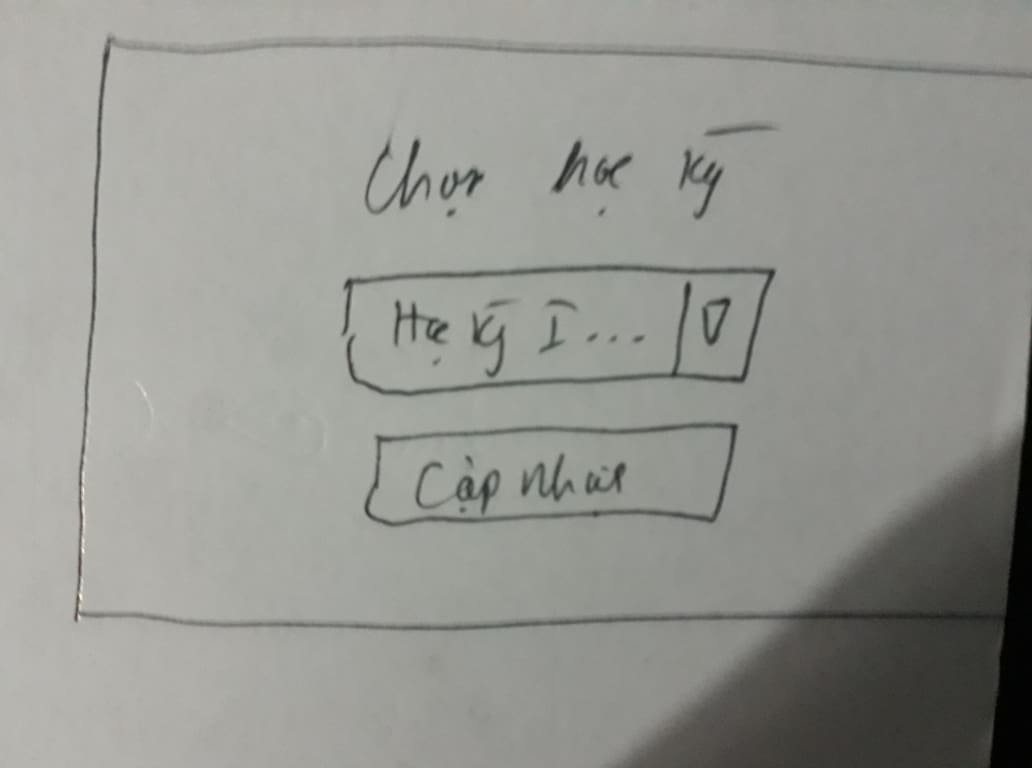 Chọn học kỳ
Học kỳ I...
Cập nhật